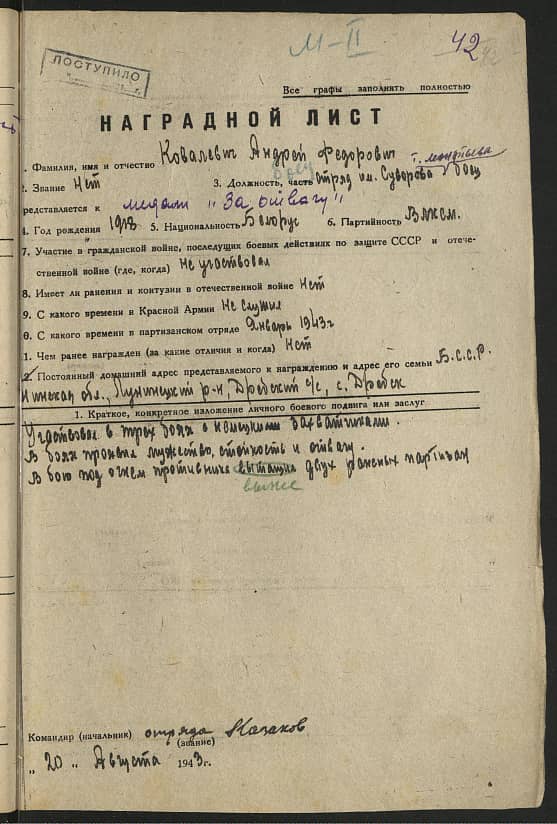 М-II
42
ПОСТУПИЛО
Все графы заполнять полностью
НАГРАДНОЙ ЛИСТ
1. Фамилия, имя и отчество Ковалевич Андрей Федорович
боец
2. Звание Нет 3. Должность, часть отряд им. Суворова боец
редставляется к медали "За отвагу"
4. Год рождения 1918 5. Национальность Белорус 6. Партийность Влксм.
7. Участие в гражданской войне, последущих боевых действиях по защите СССР и отече-
ственной войне (где, когда) Не участвовал
8. Имеет ли ранения и контузии в отечественной войне Нет
9. С какого времени в Красной Армии Не служил
0. С какого времени в партизанском отряде Январь 1943 г
1. Чем ранее награжден (за какие отличия и когда) Нет
2. Постоянный домашний адрес представляемого к награждению и адрес его семьи Б.С.С.Р.
Пинская обл., Лунинецкий р-н, Дребский с/с, с. Дребск
1. Краткое, конкретное изложение личного боевого подвига или заслуг
Участвовал в трех боях с немецкими захватчиками.
В боях проявил мужество, стойкость и отвагу.
В бою под огнем противника вытащил двух раненых партизан
вынес
Командир (начальник) отряда Казаков
(звание)
„ 20 „ Августа 1943 г.